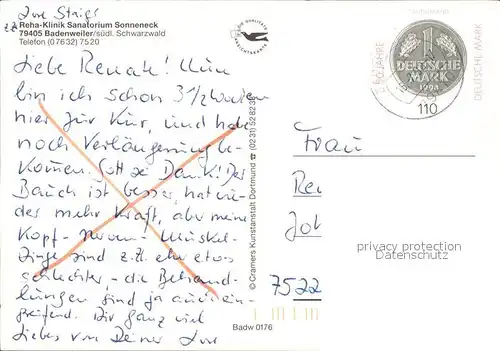 Reha-Klinik Sanatorium Sonneneck
79405 Badenweiler/südl. Schwarzwald
Telefon (07632) 7520
Liebe Renate! Nun
bin ich schon 3 1/2 Wochen
hier zur Kur, und habe
noch Verlängerung be-
kommen. Gott sei Dank! Der
Bauch ist besser, hat wie-
der mehr Kraft, aber meine
Kopf- Nerven- Muskel-
Dinge sind z.Z. eher etwas
schlechter, - die Behand-
lungen sind ja auch ein-
greifend. Dir ganz viel
Liebes von Deiner
© Cramers Kunstanstalt Dortmund ☎ (0231) 52 82 30
Badw 0176
40 JAHRE
DEUTSCHE MARK
1
DEUTSCHE
MARK
110
Frau
Re
Joh
7522
privacy protection
Datenschutz